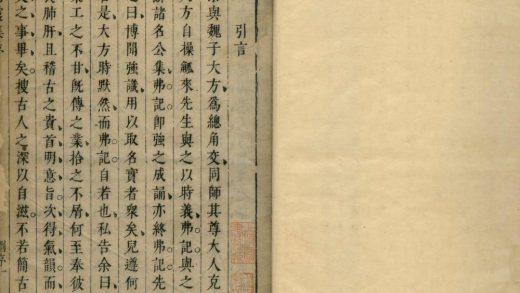 引言
與魏子大方爲總角交同師其尊大人克
方自操觚來先生與之以時義弗記與之
諸名公集弗記卽強之成誦亦終弗記先
曰博聞強識用以取名實者衆矣兒遂何
是大方時默然而弗記自若也私告余曰
工之不甘旣傳之業拾之不屑何至奉彼
肺肝且稽古之貴首明意旨次得氣韻而
之事畢矣搜古人之深以自滋不若簡古